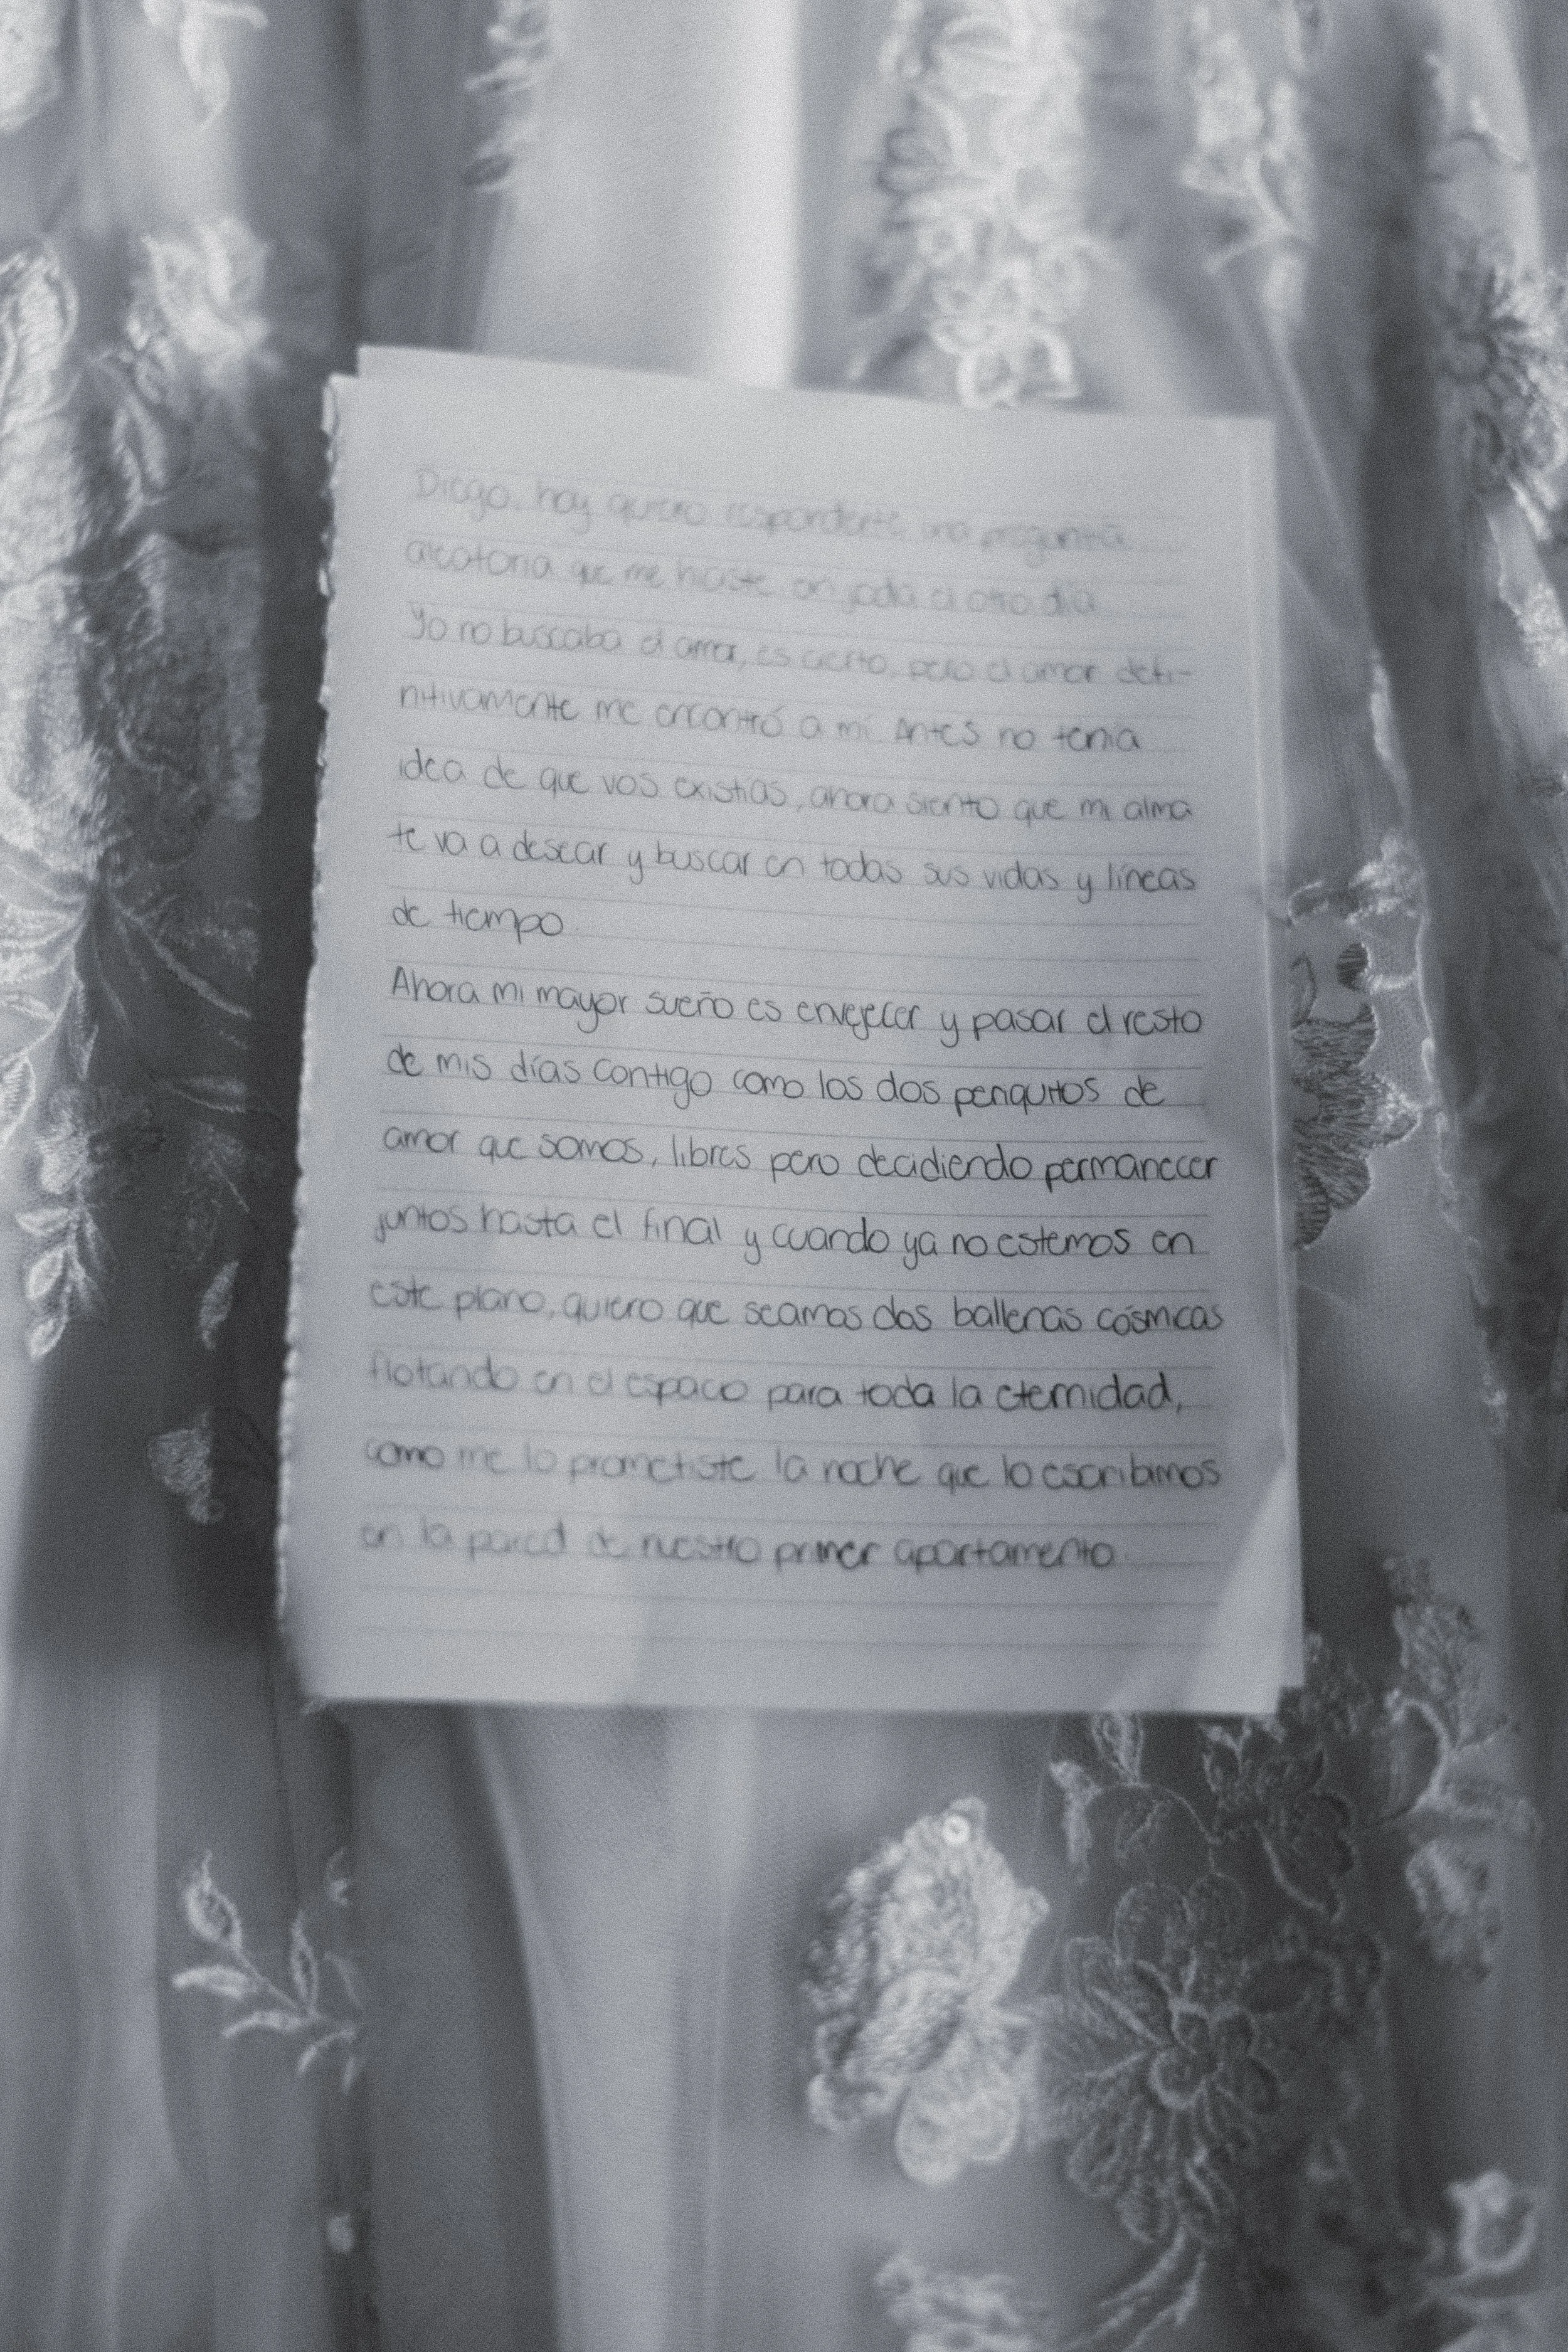 Diego, hoy quiero responderte una pregunta
aleatoria que me hiciste en joda el otro día
Yo no buscaba el amor, es cierto, pero el amor defi-
nitivamente me encontró a mí. Antes no tenía
idea de que vos existías, ahora siento que mi alma
te va a desear y buscar en todas sus vidas y líneas
de tiempo.
Ahora mi mayor sueño es envejecer y pasar el resto
de mis días contigo como los dos periquitos de
amor que somos, libres pero decidiendo permanecer
juntos hasta el final y cuando ya no estemos en
este plano, quiero que seamos dos ballenas cósmicas
flotando en el espacio para toda la eternidad,
como me lo prometiste la noche que lo escribimos
en la pared de nuestro primer apartamento.